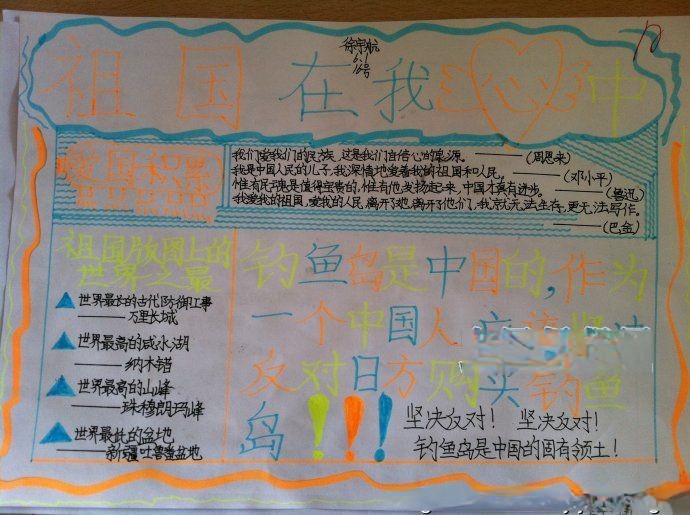 徐宇航
6.1
16号
祖国在我心中
爱国积累
我们爱我们的民族，这是我们自信心的源泉。——（周恩来）
我是中国人民的儿子，我深情地爱着我的祖国和人民。——（邓小平）
惟有民魂是值得宝贵的，惟有他发扬起来，中国才真有进步。——（鲁迅）
我爱我的祖国，爱我的人民，离开了她，离开了他们，我就无法生存，更无法写作。
——（巴金）
祖国版图上的
世界之最
世界最长的古代防御工事
——万里长城
世界最高的咸水湖
——纳木错
世界最高的山峰
——珠穆朗玛峰
世界最低的盆地
——新疆吐鲁番盆地
钓鱼岛是中国的，作为
一个中国人
反对日方购买钓鱼
岛！！！
坚决反对！ 坚决反对！
钓鱼岛是中国的固有领土！